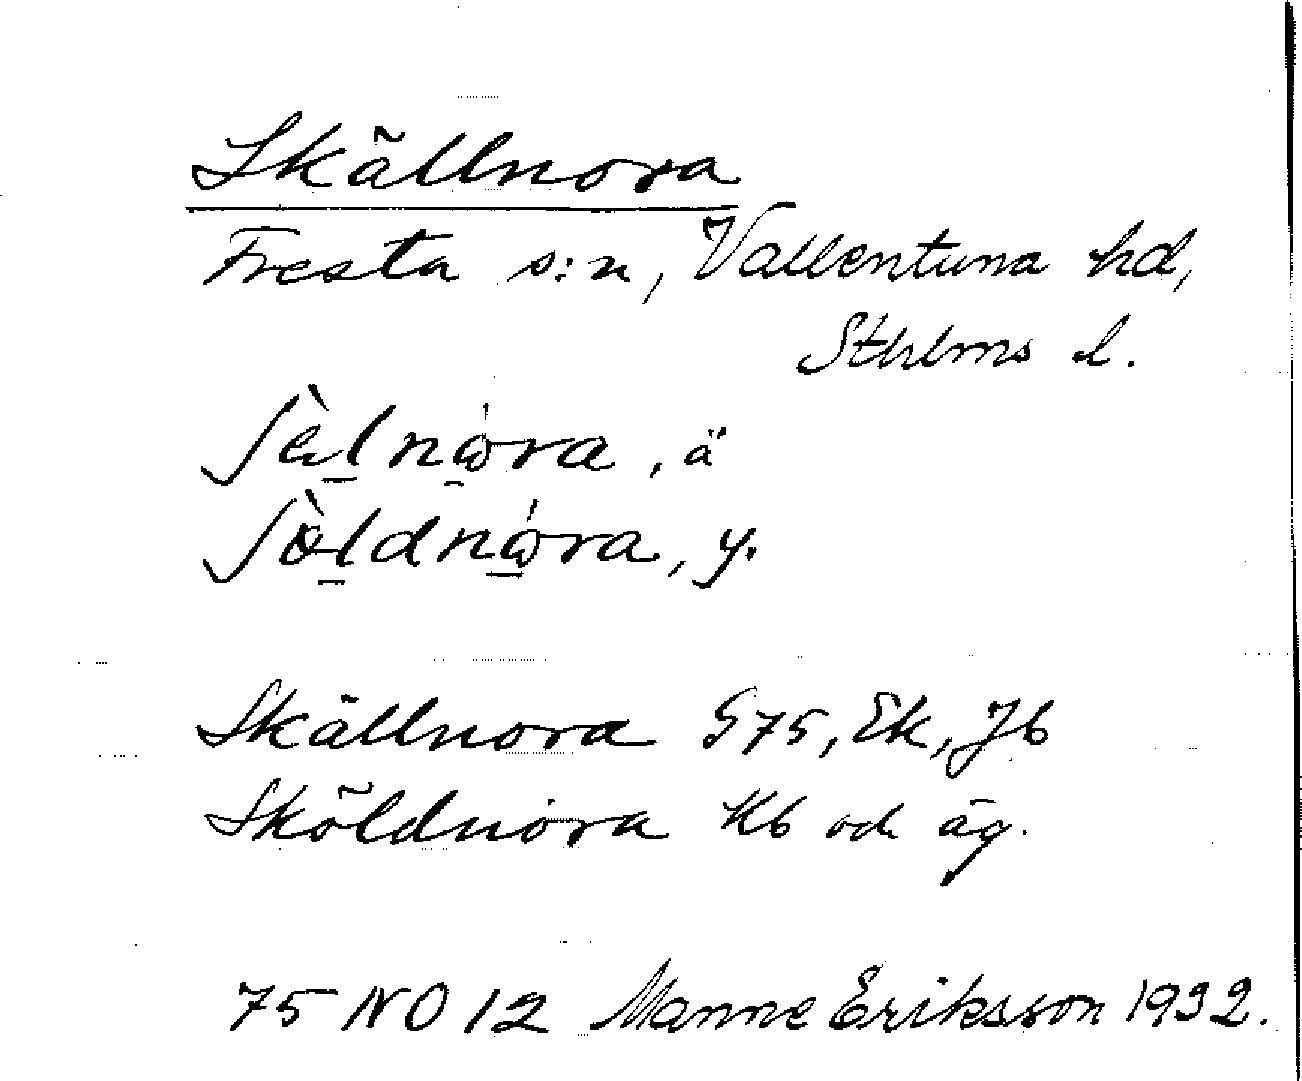 Skällnora
Fresta s:n, Vallentuna hd,
Sthlms l.
ʃæ̀lnώra, ä
ʃö̀ldnώra, y.
Skällnora G75, Ek, Jb
Sköldnora Kb och äg.
75 NO 12 Manne Eriksson 1932.